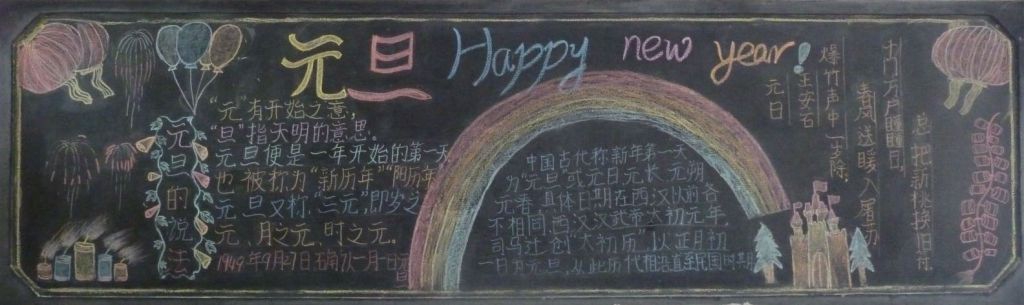 元旦 Happy new year!
元旦的说法
“元”有开始之意,
“旦”指天明的意思。
元旦便是一年开始的第一天
也被称为“新历年”“阳历年
元旦又称“三元”,即岁之
元、月之元、时之元。
1949年9月27日
中国古代称新年第一天
为“元旦”或元日元长 元朔
元春 具体日期在西汉以前各
不相同,西汉汉武帝太初元年
司马迁创“太初历”以正月初
一日为元旦,从此历代相沿直至民国
元日
王安石
爆竹声中一岁除
春风送暖入屠苏
千门万户曈曈日
总把新桃换旧符